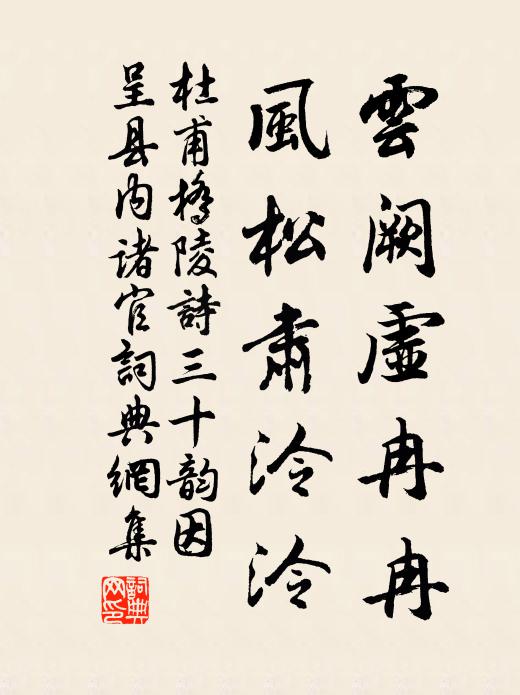 雲阙虛冉冉
風松肅泠泠
杜甫橋陵詩三十韵因
呈县内诸官詞典網集
詞典网印